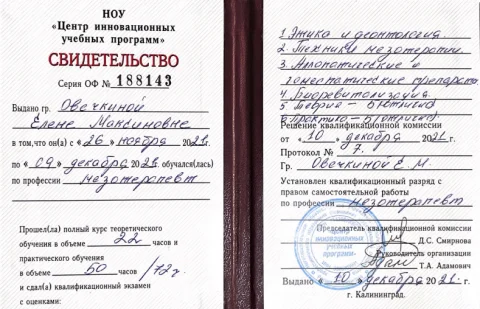 НОУ
«Центр инновационных
учебных программ»
СВИДЕТЕЛЬСТВО
Серия ОФ № 188143
Выдано гр. Овечкиной
Елене Максимовне
в том,что он(а) с « 26 » ноября 2021г.
по « 09 » декабря 2021г. обучался(лась)
по профессии мезотерапевт
Прошел(ла) полный курс теоретического
обучения в объеме 22 часов и
практического обучения
в объеме 50 часов /72ч.
и сдал(а) квалификационный экзамен
с оценками:
1. Этика и деонтология.
2. Техники мезотерапии.
3. Аллопатические и
гомеопатические препараты
4. Биоревитализация.
5 Теория - 5 /отлично
6. Практика - 5 /отлично
Решение квалификационной комиссии
от « 10 » декабря 2021г.
Протокол № 7.
Гр. Овечкиной Е. М.
Установлен квалификационный разряд с
правом самостоятельной работы
по профессии мезотерапевт
Председатель квалификационной комиссии
Д.С. Смирнова
Руководитель организации
Т.А. Адамович
Выдано « 10 » декабря 2021г.
г. Калининград.
Центр
инновационных
учебных
программ